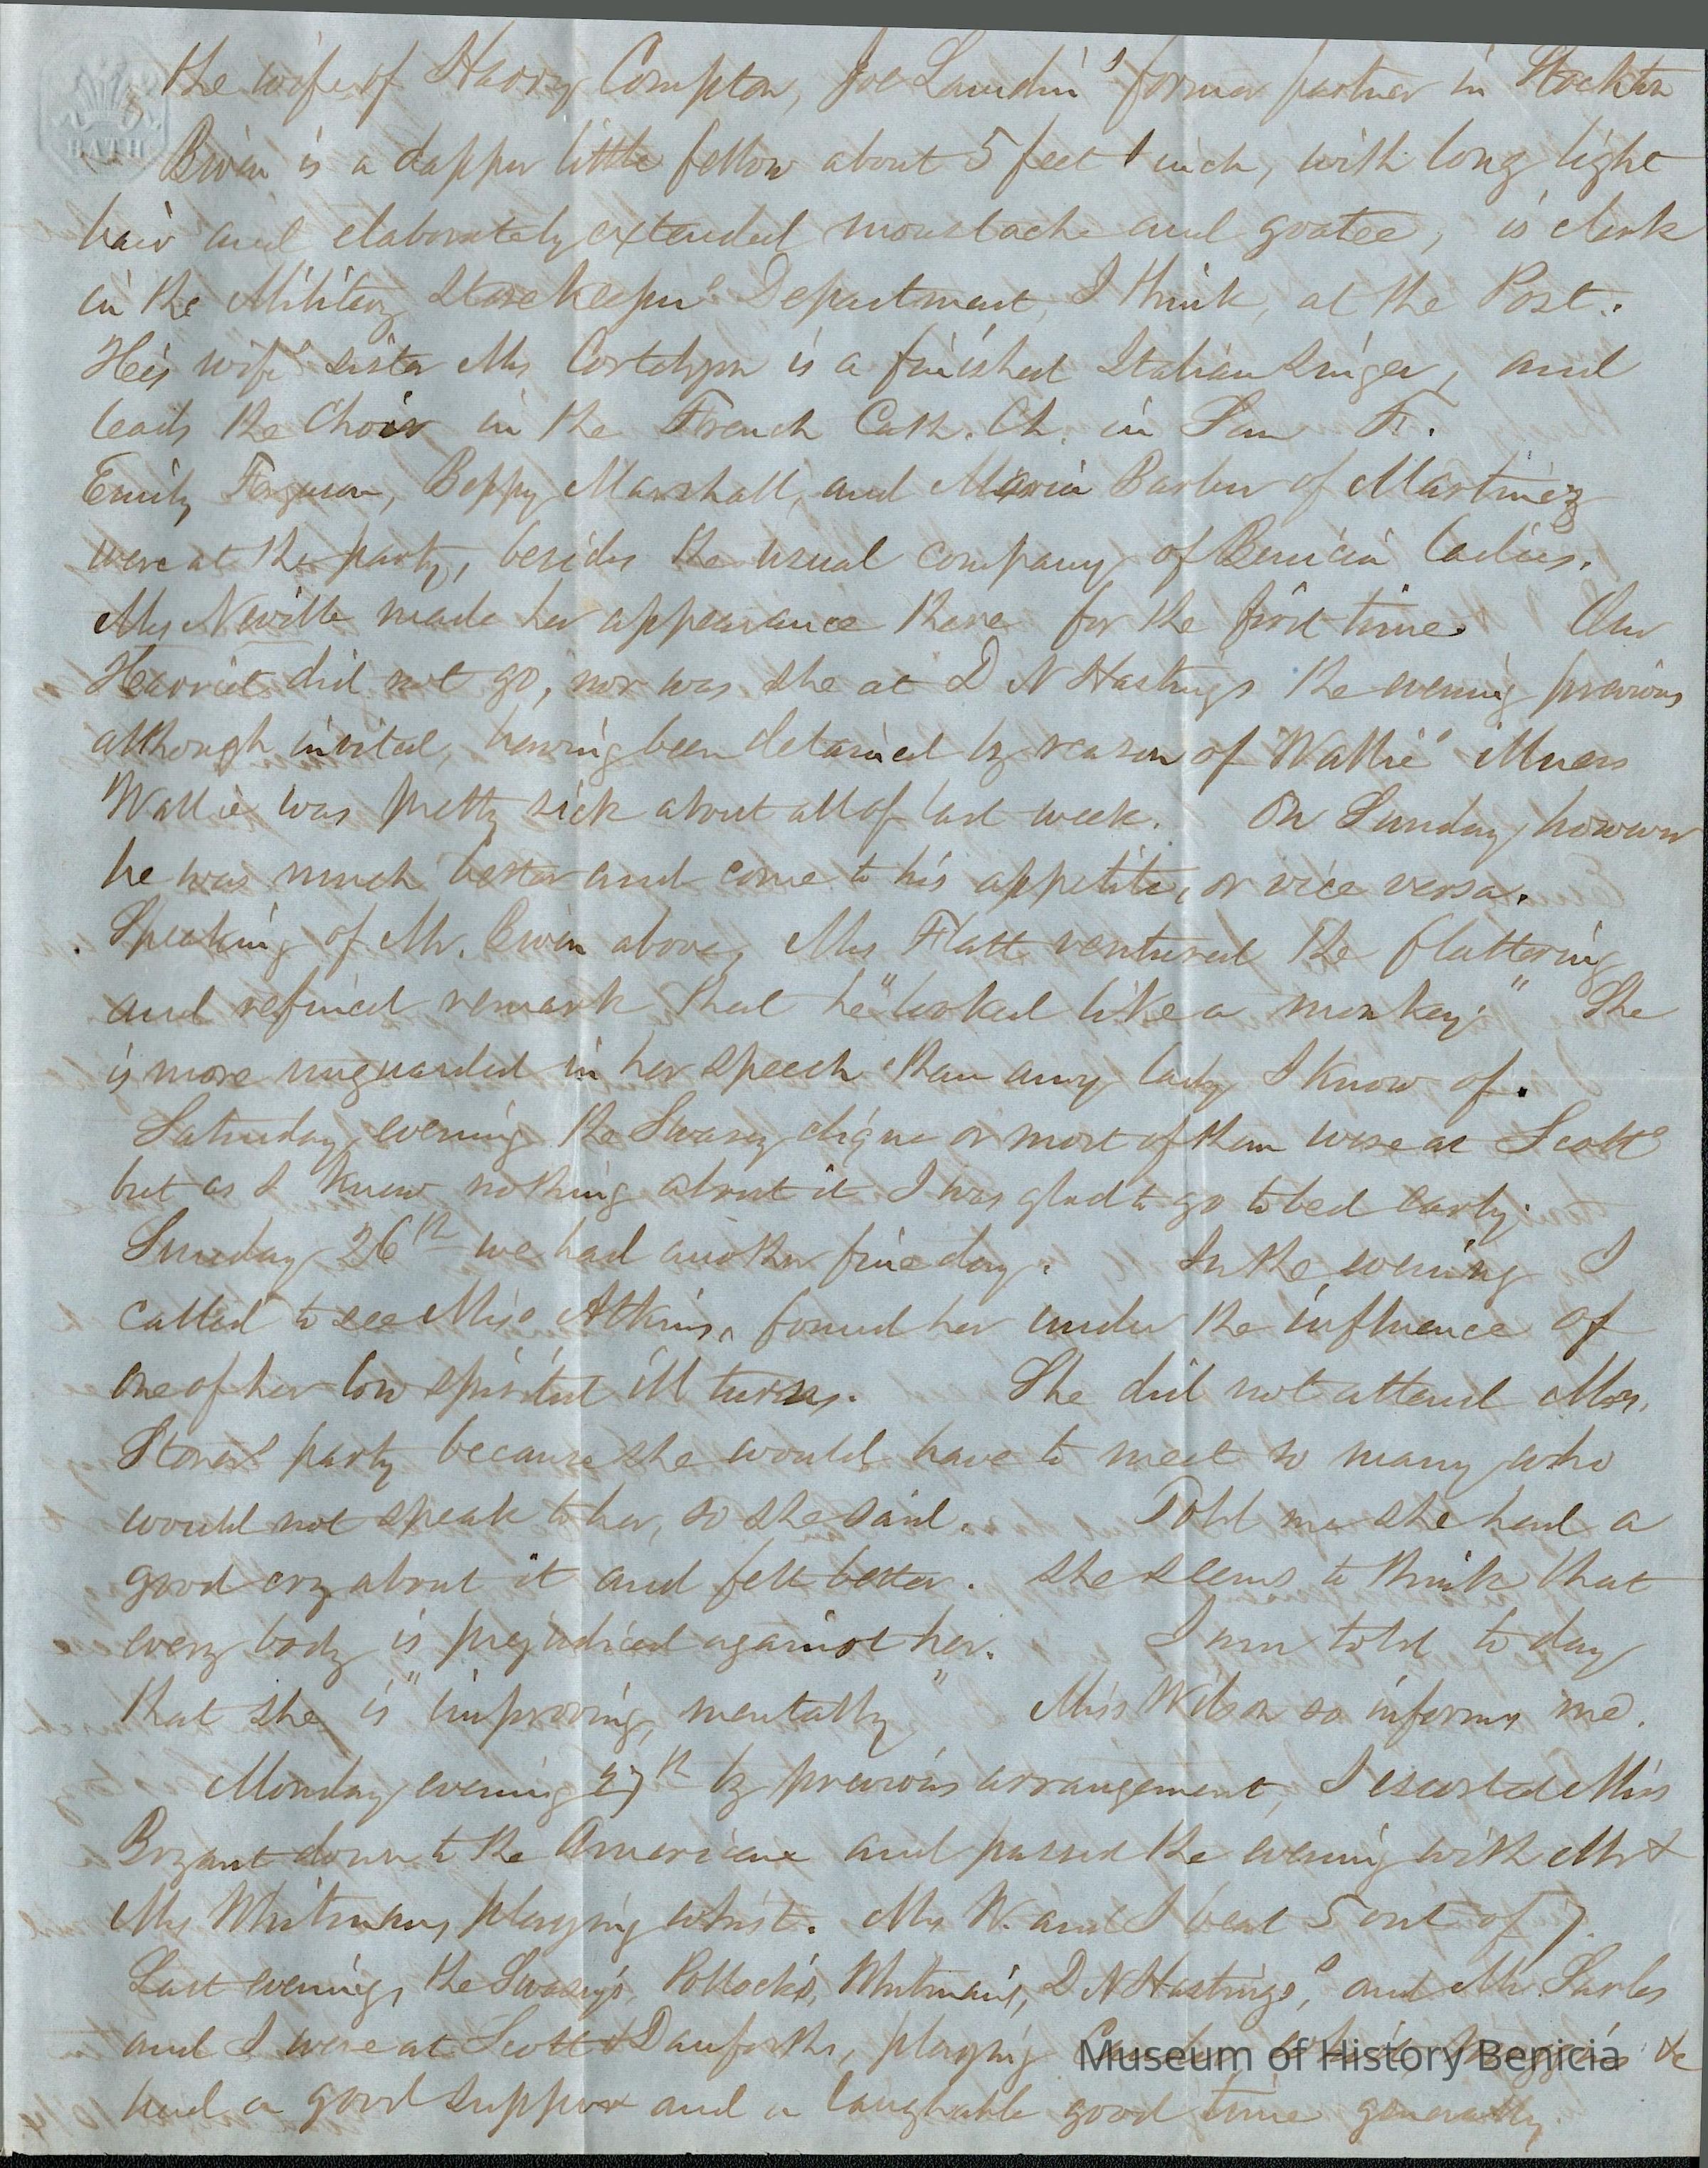 BATH
the wife of Harry Compton, Joe Lamdin's former partner in Stockton
is a dapper little fellow about 5 feet 1 inch, with long light
hair and elaborately extended moustache and goatee, is clerk
in the Military Storekeeper's Department, I think, at the Post.
His wife's sister Mrs is a finished Italian singer, and
leads the Choir in the French Cath. Ch. in San F.
Emily Ferguson, Beppy Marshall, and Maria Barber of Martinez
were at the party, besides the usual company of Benicia ladies.
Mrs Neville made her appearance there for the first time. Our
Harriet did not go, nor was she at D N Hastings the evening previous
although invited, having been detained by reason of Wallie's illness
Wallie was pretty sick about all of last week. On Sunday, however
he was much better and come to his appetite, or vice versa.
Speaking of Mr. above, Mrs Flatt ventured the flattering
and refined remark that he "looked like a monkey." She
is more unguarded in her speech than any lady I know of.
Saturday evening the Swasey clique or most of them were at Scott's
but as I knew nothing about it I was glad to go to bed early.
Sunday 26th we had another fine day. In the evening I
called to see Miss Atkins, found her under the influence of
one of her low spirited ill turns. She did not attend Mrs.
Stone's party because she would have to meet so many who
would not speak to her, so she said. Told me she had a
good cry about it and felt better. She seems to think that
every body is prejudiced against her. I am told to day
that she is "improving, mentally" Miss Wilson so informs me.
Monday evening 27th by previous arrangement, I escorted Miss
Bryant down to the American and passed the evening with Mr &
Mrs Whitman, playing whist. Mrs W. and I beat 5 out of 7.
Last evening, the Swasey's, Pollock's, Whitman's, D N Hastings', and Mr. Sarles
and I were at Scott & Danforths, playing &c
had a good supper and a laughable good time generally.
Museum of History Benicia